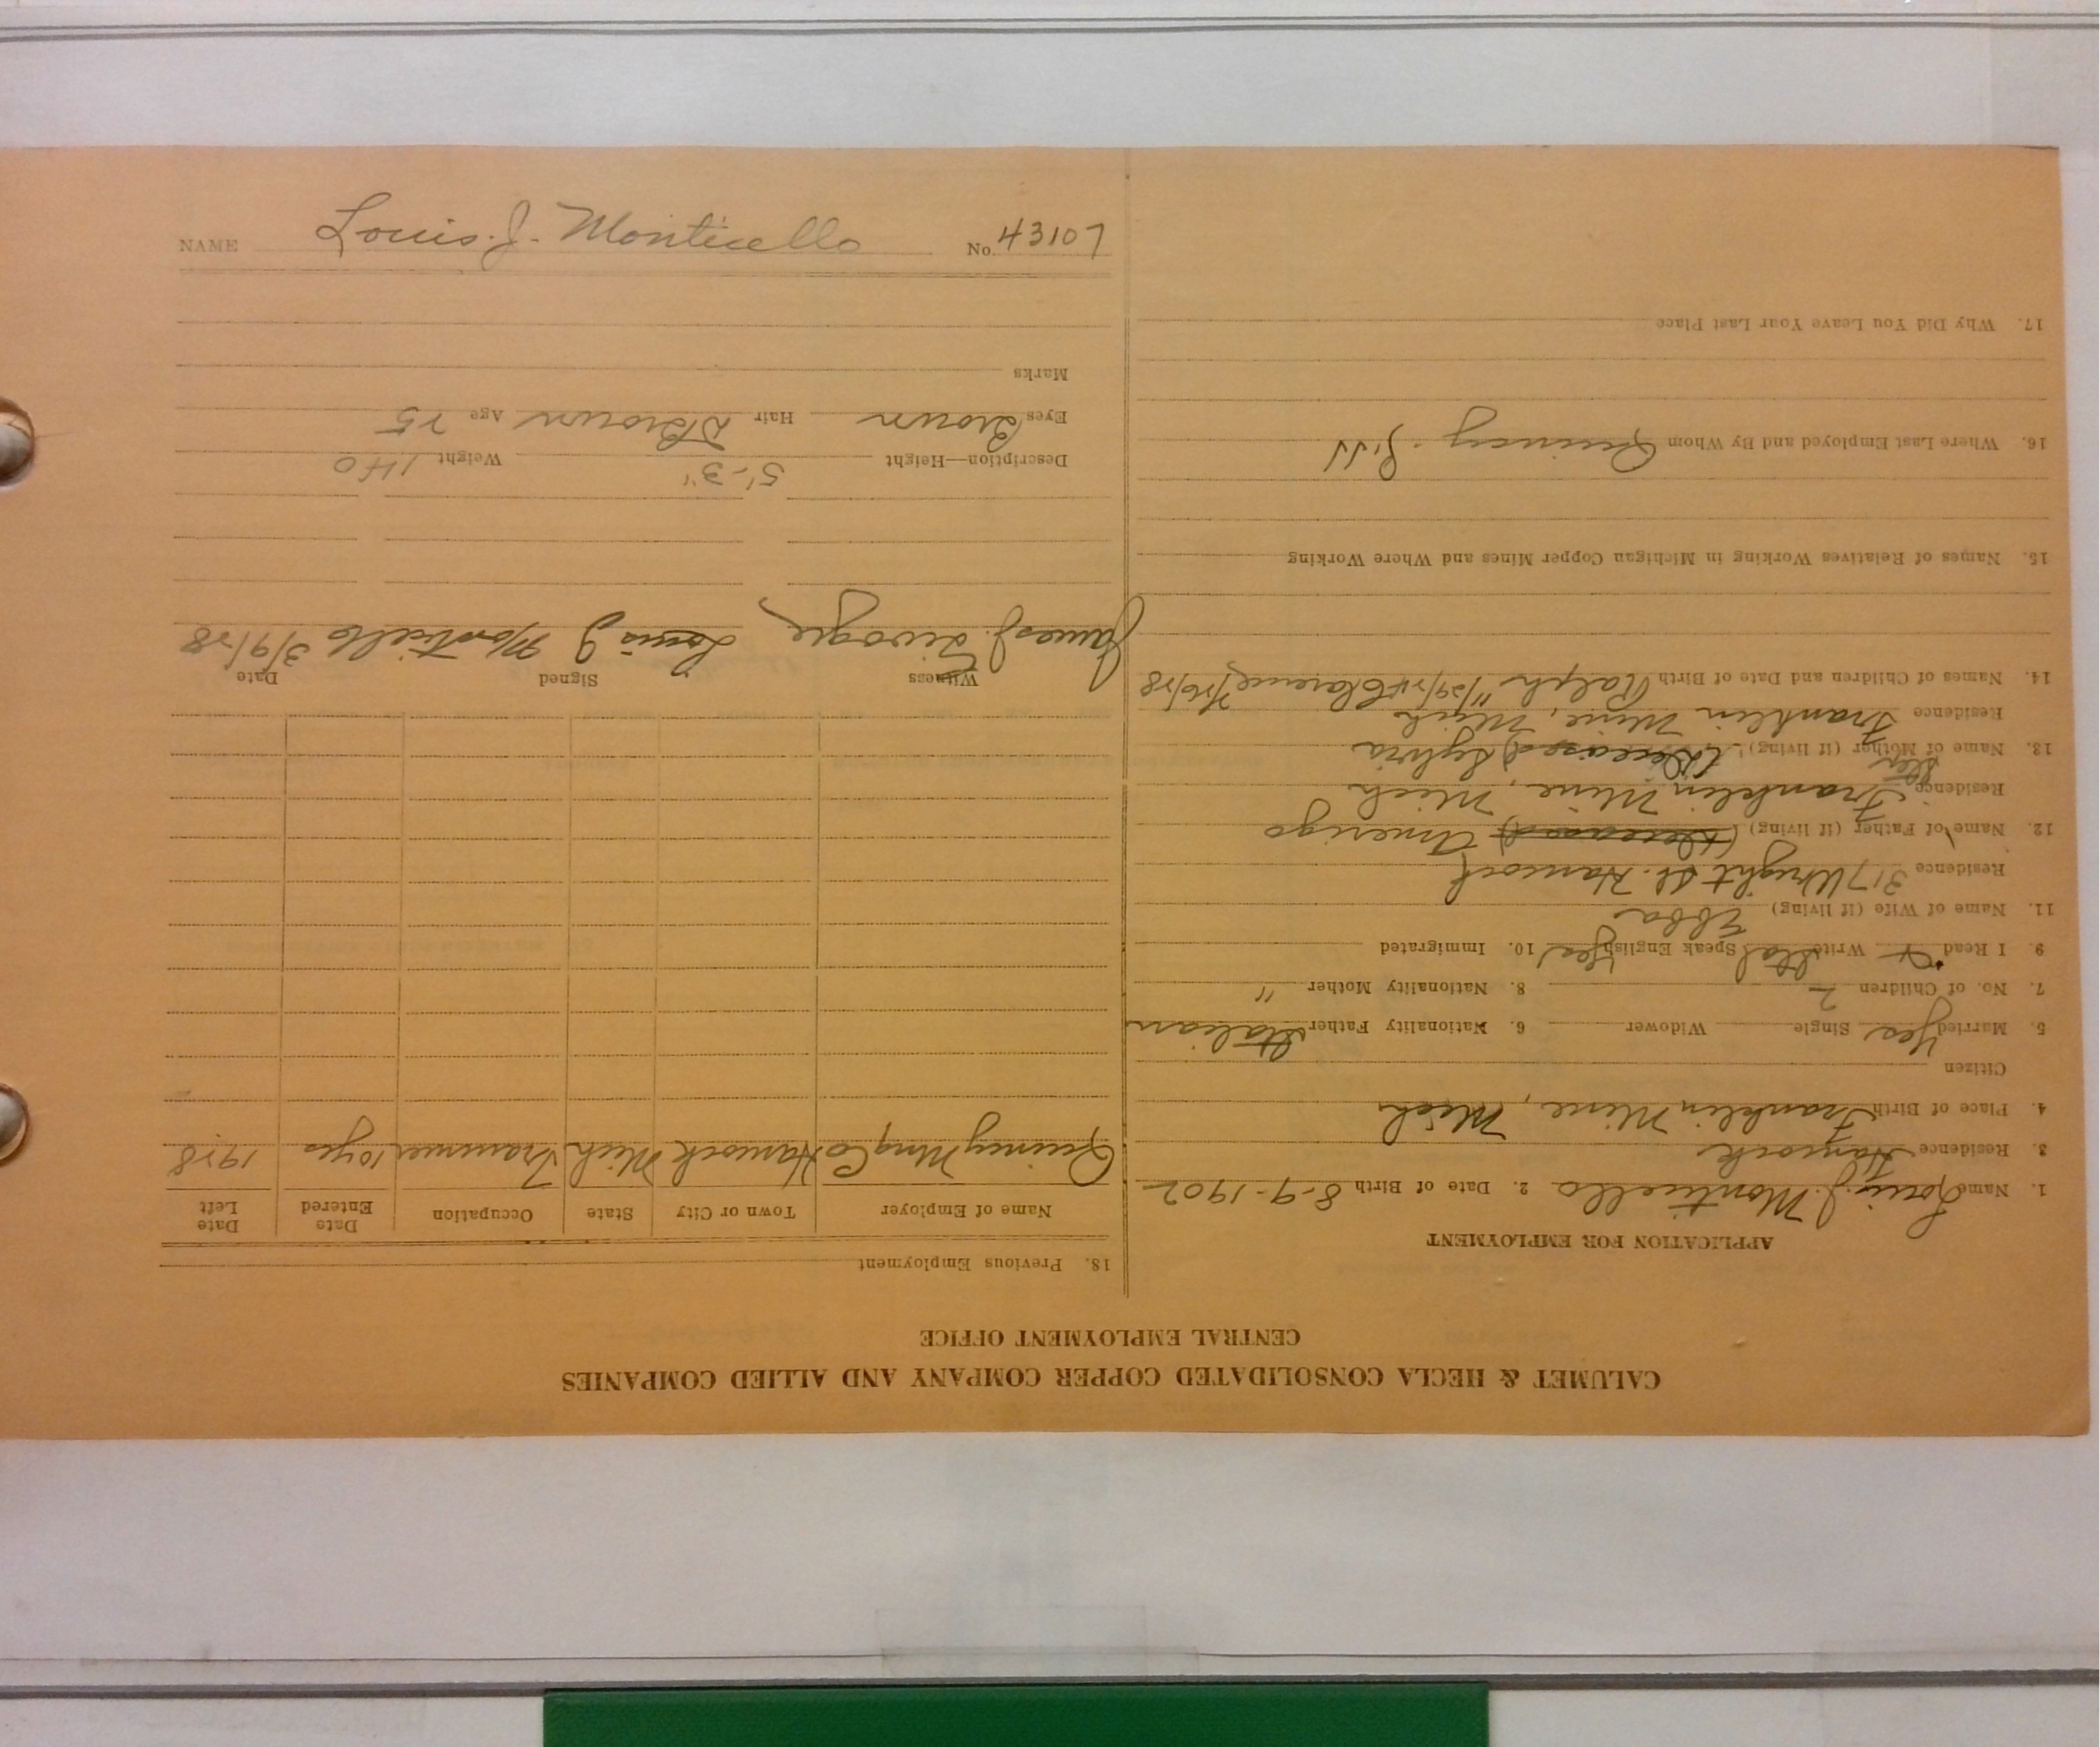 NAME Louis. J. Monticello No. 43107
CALUMET & HECLA CONSOLIDATED COPPER COMPANY AND ALLIED COMPANIES
CENTRAL EMPLOYMENT OFFICE
APPLICATION FOR EMPLOYMENT
1. Name Louis J. Monticello 2. Date of Birth 8-9-1902
3. Residence Hancock
4. Place of Birth Franklin Mine, Mich
Citizen
5. Married Yes Single Widower 6. Nationality Father Italian
7. No. of Children 2 8. Nationality Mother "
9. I Read Write Speak English Yes 10. Immigrated
11. Name of Wife (if living) Ebba
Residence 317 Wright St. Hancock
12. Name of Father (if living) (Deceased) Amerigo
Residence Franklin Mine, Mich
Step
13. Name of Mother (if living) (Deceased) Sylvia
Residence Franklin Mine, Mich
14. Names of Children and Date of Birth Ralph 11/29/24 Clarence
15. Names of Relatives Working in Michigan Copper Mines and Where Working
16. Where Last Employed and By Whom Quincy
17. Why Did You Leave Your Last Place
18. Previous Employment
Name of Employer Town or City State Occupation Date Entered Date Left
Quincy Mng Co Hancock Mich Trammer 10 yrs 1928
Witness Signed Date
James J. Louis J Monticello 3/9/28
Description—Height 5'-3" Weight 140
Eyes Brown Hair D Brown Age 25
Marks